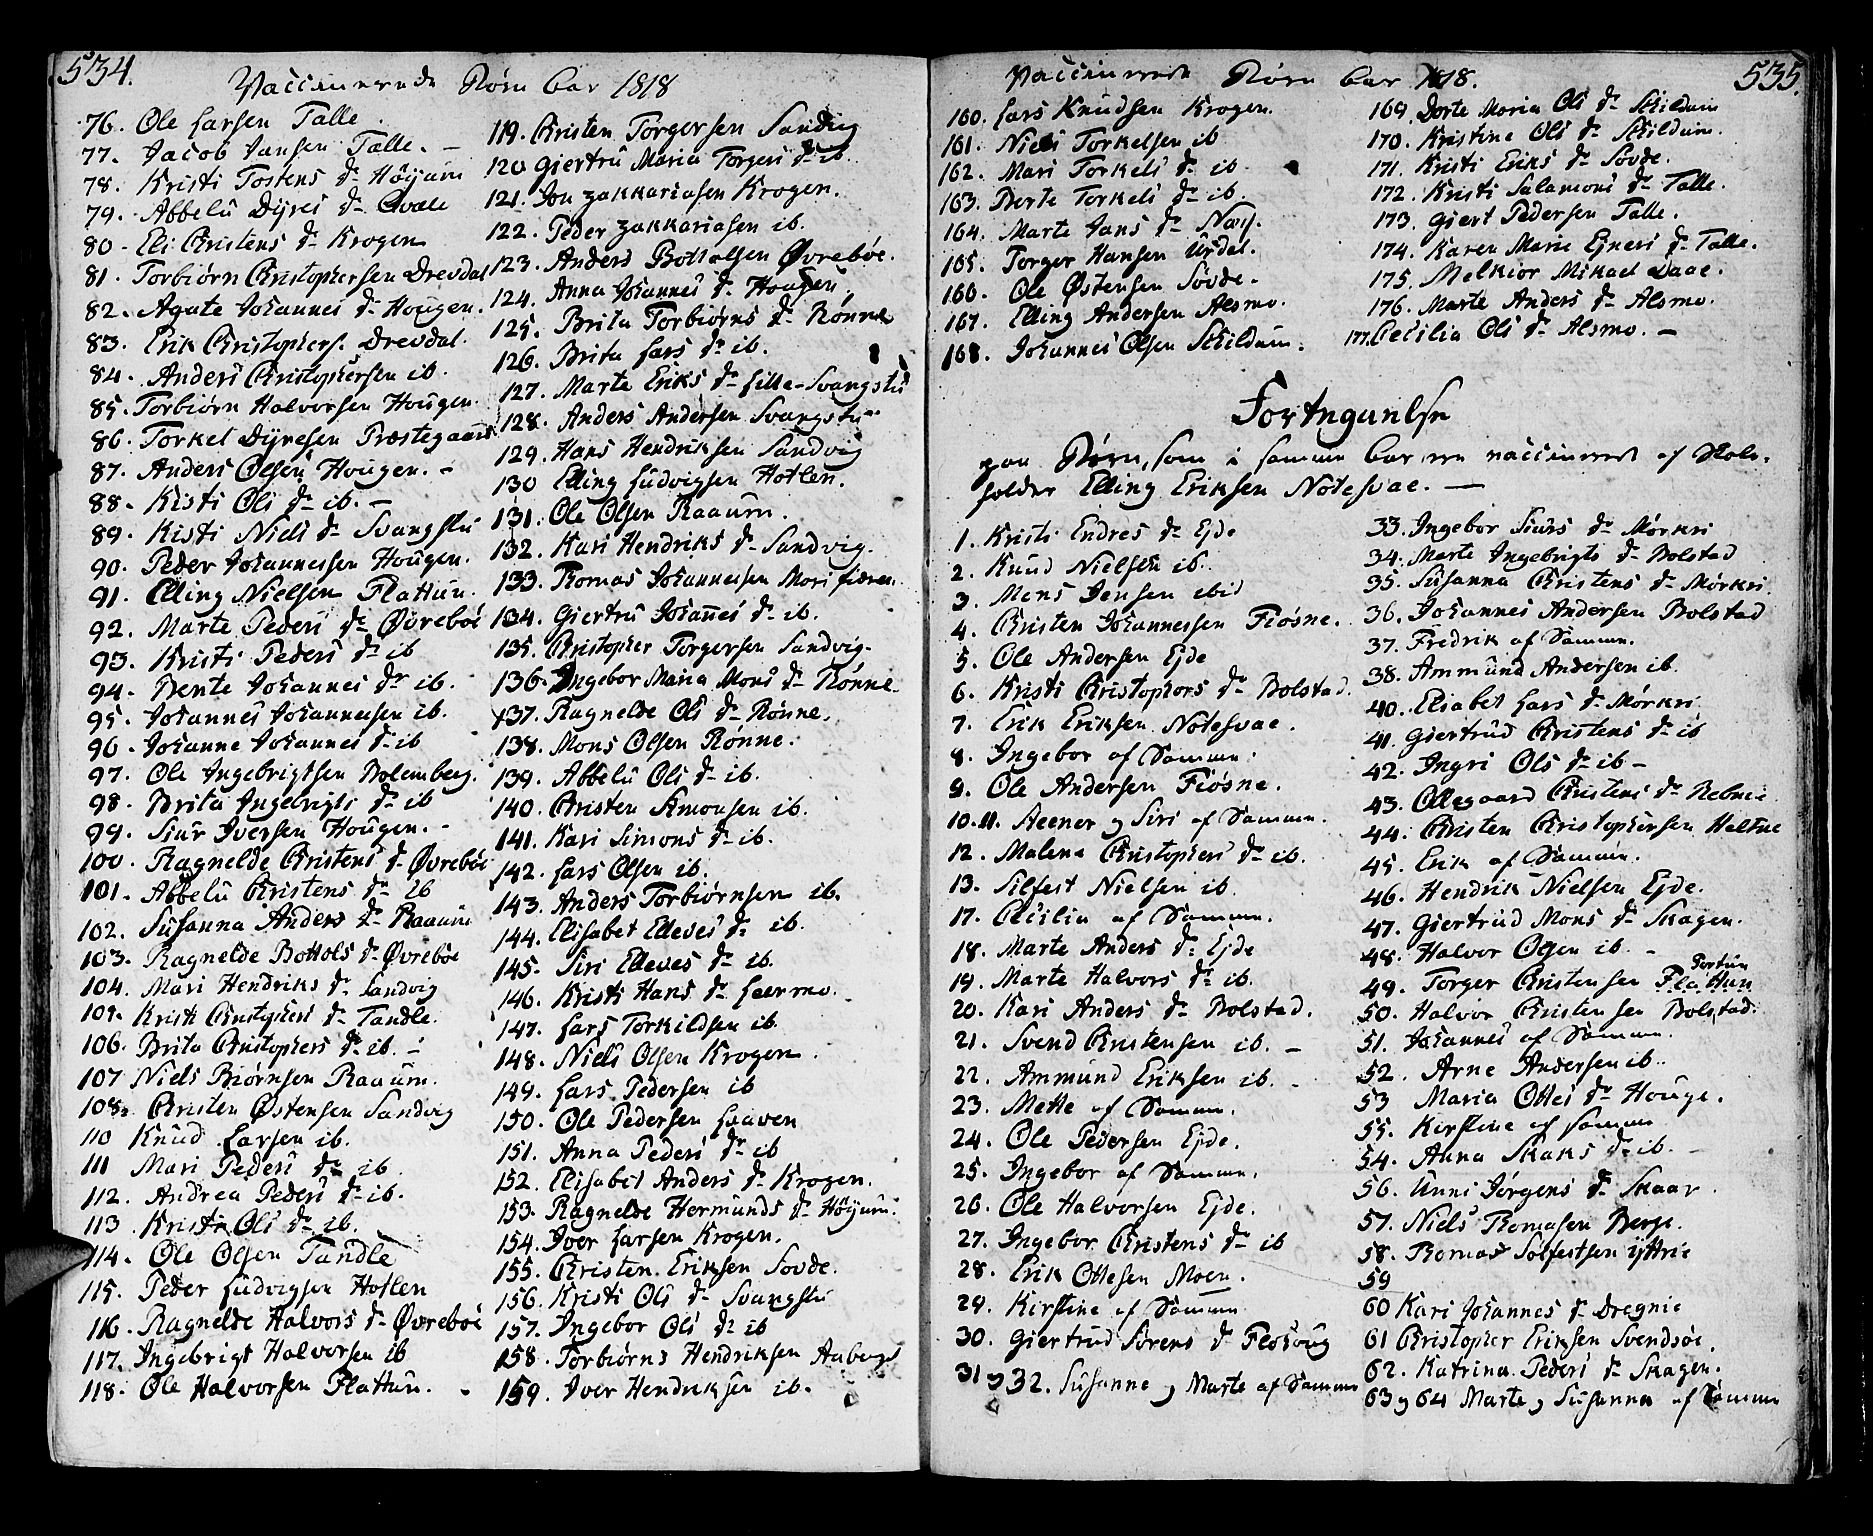 534.
Vaccinerede Børn Aar 1818
76. Ole Larsen Talle.
77. Jacob Jansen Talle. -
78. Kristi Tostens Dr Höÿum
79. Abbelü Dÿres Dr Qvale
80. Eli Christens Dr Krogen
81. Torbiørn Christophersen Drevdal
82. Agate Johannes Dr Hougen.
83. Erik Christophers. Drevdal.
84. Anders Christophersen ib.
85. Torbiørn Halvorsen Hougen.
86. Torkel Dÿresen Præstegaard
87. Anders Olsen Hougen. -
88. Kisti Ols Dr ib. -
89. Kisti Niels Dr Svangstu
90. Peder Johannessen Hougen.
91. Elling Nielsen Flattun.
92. Marte Peders Dr Øvrebøe
93. Kristi Peders Dr ib
94. Bente Johannes Dr ib.
95. Johannes Johannessen ib.
96. Johanne Johannes Dr ib
97. Ole Ingebrigtsen Bolemberg.
98. Brita Ingebrigts Dr ib
99. Siur Iversen Hougen. -
100. Ragnelde Christens Dr Øvrebøe
101. Abbelü Christens Dr ib
102. Susanna Anders Dr Raaum
103. Ragnelde Bottols Dr Øvrebøe
104. Mari Hendriks Dr Sandvig
105. Kristi Christophers Dr Tandle.
106. Brita Christophers Dr ib. -
107 Niels Biørnsen Raaum.
108. Christen Østensen Sandvig
110 Knud Larsen ib.
111 Mari Peders Dr ib.
112. Andrea Peders Dr ib.
113 Kristi Ols Dr ib.
114. Ole Olsen Tandle
115. Peder Ludvigsen Hotlen
116. Ragnelde Halvors Dr Øvrebøe
117. Ingebrigt Halvorsen ib
118. Ole Halvorsen Flattun.
119. Christen Torgersen Sandvig
120 Giertru Maria Torgers Dr ib.
121. Jon Zakkariasen Krogen.
122. Peder Zakkariasen ib.
123. Anders Bottolsen Øvrebøe.
124. Anna Johannes Dr Hougen.
125. Brita Torbiørns Dr Rønne
126. Brita Lars Dr ib.
127. Marte Eriks Dr Lille-Svangstu
128. Anders Andersen Svangstu
129. Hans Hendriksen Sandvig
130 Elling Ludvigsen Hotlen.
131. Ole Olsen Raaum.
132. Kari Hendriks Dr Sandvig.
133. Thomas Johannessen Morifiæren.
134. Giertru Johannes Dr ib.
135. Christopher Torgersen Sandvig.
136. Ingebor Maria Mons Dr Rønne.
137. Ragnelde Ols Dr Rønne.
138. Mons Olsen Rønne.
139. Abbelü Ols Dr ib.
140. Christen Simonsen ib.
141. Kari Simons Dr ib.
142. Lars Olsen ib.
143. Anders Torbiørnsen ib.
144. Elisabet Elleves Dr ib.
145. Siri Elleves Dr ib.
146. Kristi Hans Dr Leermo.
147. Lars Torkildsen ib.
148. Niels Olsen Krogen.
149. Lars Pedersen ib
150. Ole Pedersen Haaven
151. Anna Peders Dr ib
152. Elisabet Anders Dr Krogen.
153. Ragnelde Hermunds Dr Höÿum.
154. Iver Larsen Krogen.
155. Christen Eriksen Sovde.
156. Kristi Ols Dr Svangstu
157. Ingebor Ols Dr ib
158. Torbiørns Hendriksen Aaberge
159. Iver Hendriksen ib.
535.
Vaccinerede Børn Aar 1818.
160. Lars Knudsen Krogen.
161. Niels Torkelsen ib
162. Mari Torkels Dr ib.
163. Berte Torkels Dr ib.
164. Marte Jans Dr Næss.
165. Torger Hansen Urdal.
166. Ole Østensen Sovde.
167. Elling Andersen Alsmo.
168. Johannes Olsen Skildum.
169. Dorte Maria Ols Dr Skildum
170. Kristine Ols Dr Skildum.
171. Kristi Eriks Dr Sovde.
172. Kristi Salamons Dr Talle.
173. Giert Pedersen Talle.
174. Karen Marie Ejners Dr Talle.
175. Melkior Mikael Daae.
176. Marte Anders Dr Alsmo.
177. Cecilia Ols Dr Alsmo. -
Fortegnelse
paa Børn, som i samme Aar ere vaccinerede af Skole-
holder Elling Eriksen Notesvae. -
1. Kristi Endres Dr Ejde
2. Knud Nielsen ib.
3. Mons Jensen ibid
4. Christen Johannessen Fiøsne.
5. Ole Andersen Ejde
6. Kristi Christophers Dr Bolstad.
7. Erik Eriksen Notesvae.
8. Ingebor af Samme.
9. Ole Andersen Fiøsne.
10. 11. Steener og Siri af Samme.
12. Malene Christophers Dr ib.
13. Silfest Nielsen ib.
17. Cecilia af Samme.
18. Marte Anders Dr Ejde
19. Marte Halvors Dr ib.
20. Kari Anders Dr Bolstad.
21. Svend Christensen ib. -
22. Ammund Eriksen ib. -
23. Mette af Samme.
24. Ole Pedersen Ejde.
25. Ingebor af Samme.
26. Ole Halvorsen Ejde.
27. Ingebor Christens Dr ib
28. Erik Ottesen Moen.
29. Kirstine af Samme
30. Giertrud Sørens Dr Flohoug
31 og 32. Susanne og Marte af Samme
33. Ingebor Siurs Dr Mørkri
34. Marte Ingebrigts Dr Bolstad
35. Susanna Christens Dr Mørkri.
36. Johannes Andersen Bolstad
37. Fredrik af Samme.
38. Ammund Andersen ib.
40. Elsabet Lars Dr Mørkri
41. Giertrud Christens Dr ib
42. Ingri Ols Dr ib -
43. Ollegaard Christens Dr Nebnie
44. Christen Christophersen Heltne
45. Erik af Samme.
46. Hendrik Nielsen Ejde.
47. Giertrud Mons Dr Skagen.
48. Halvor Olsen ib. -
49. Torger Christensen Flattun Fortun
50. Halvor Christensen Bolstad.
51. Johannes af Samme.
52. Arne Andersen ib.
53 Maria Ottes Dr Houge.
55. Kirstine af Samme
54. Anna Skaks Dr ib. -
56. Unni Jørgens Dr Skaar.
57. Niels Thomasen Berge.
58. Thomas Solfestsen Ÿttrie
59
60 Kari Johannes Dr Dregnie
61 Christopher Eriksen Svendsøe.
62. Katrina Peders Dr Skagen.
63 og 64 Marte og Susanna af Samme